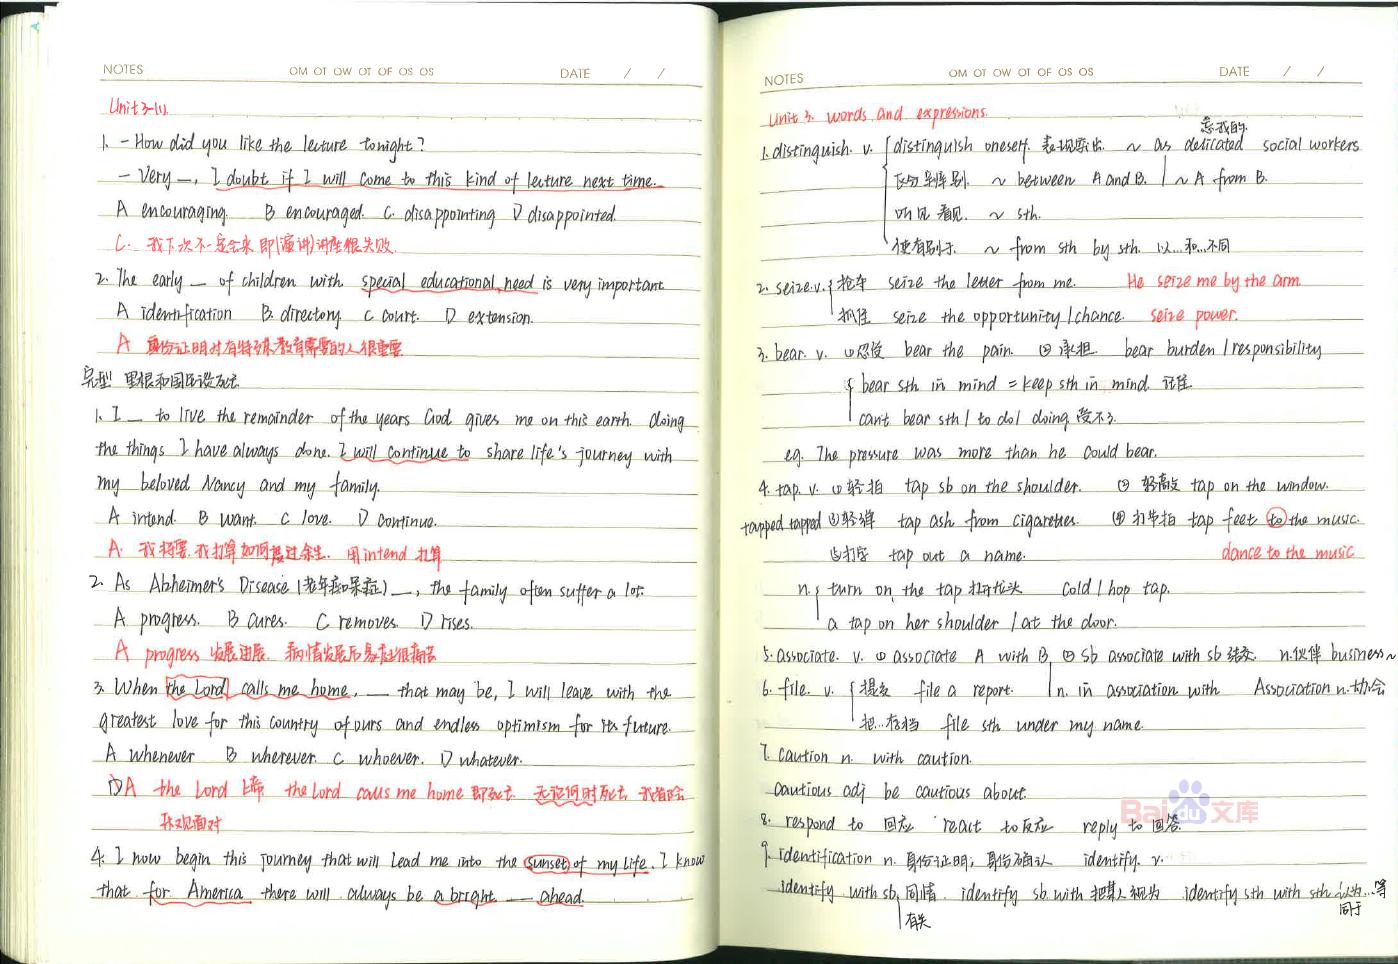 NOTES OM OT OW OT OF OS OS DATE / /
Unit 3-(1).
1. - How did you like the lecture tonight?
- Very —, I doubt if I will come to this kind of lecture next time.
A encouraging. B encouraged. C. disappointing D disappointed.
C. 我下次不一定会来 即(演讲)讲座很失败.
2. The early — of children with special educational need is very important
A identification B. directory. C court. D extension.
A 身份证明对有特殊教育需要的人很重要
完型 里根和国民谈死亡
1. I — to live the remainder of the years God gives me on this earth. doing
the things I have always done. I will continue to share life's journey with
my beloved Nancy and my family.
A intend. B want. C love. D continue.
A. 我将要.我打算如何度过余生. 用intend 打算
2. As Alzheimer's Disease (老年痴呆症) —, the family often suffer a lot.
A progress. B cures. C removes. D rises.
A progress 发展进展. 病情发展后家庭很痛苦
3. When the Lord calls me home, — that may be, I will leave with the
greatest love for this country of ours and endless optimism for its future.
A whenever B wherever. C whoever. D whatever.
A the Lord 上帝 the Lord calls me home 即死亡 无论何时死亡 我都会
乐观面对
4. I now begin this journey that will lead me into the sunset of my life. I know
that for America there will always be a bright — ahead.
NOTES OM OT OW OT OF OS OS DATE / /
Unit 3. words and expressions.
忘我的
1. distinguish. v. distinguish oneself. 表现突出. ~ as delicated social workers
区分 辨别. ~ between A and B. ~ A from B.
听见 看见. ~ sth.
使有别于. ~ from sth by sth. 以...和...不同
2. seize. v. 抢夺 seize the letter from me. He seize me by the arm.
抓住 seize the opportunity / chance. seize power.
3. bear. v. ①忍受 bear the pain. ② 承担. bear burden / responsibility
bear sth in mind = keep sth in mind. 记住
can't bear sth / to do / doing 受不了.
eg. The pressure was more than he could bear.
4. tap. v. ① 轻拍 tap sb on the shoulder. ② 轻敲 tap on the window.
tapped tapped ③轻弹 tap ash from cigarettes. ④ 打节拍 tap feet to the music.
⑤打字 tap out a name. dance to the music
n. turn on the tap 打开龙头 Cold / hop tap.
a tap on her shoulder / at the door.
5. associate. v. ① associate A with B ② sb associate with sb 结交. n.伙伴 business ~
6. file. v. 提交 file a report. n. in association with Association n.协会
把..存档 file sth under my name.
7. caution n. with caution.
cautious adj be cautious about.
8. respond to 回应 react to反应 reply to 回答
9. identification n. 身份证明; 身份确认 identify. v.
identify with sb 同情. identify sb. with 把某人视为 identify sth with sth 认为...等
有关 同于
Baidu文库